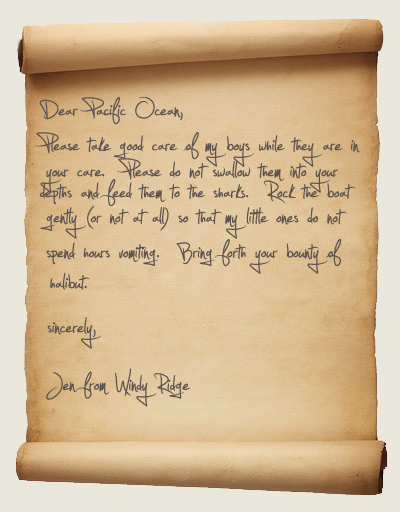 Dear Pacific Ocean,
Please take good care of my boys while they are in
your care. Please do not swallow them into your
depths and feed them to the sharks. Rock the boat
gently (or not at all) so that my little ones do not
spend hours vomiting. Bring forth your bounty of
halibut.
sincerely,
Jen from Windy Ridge